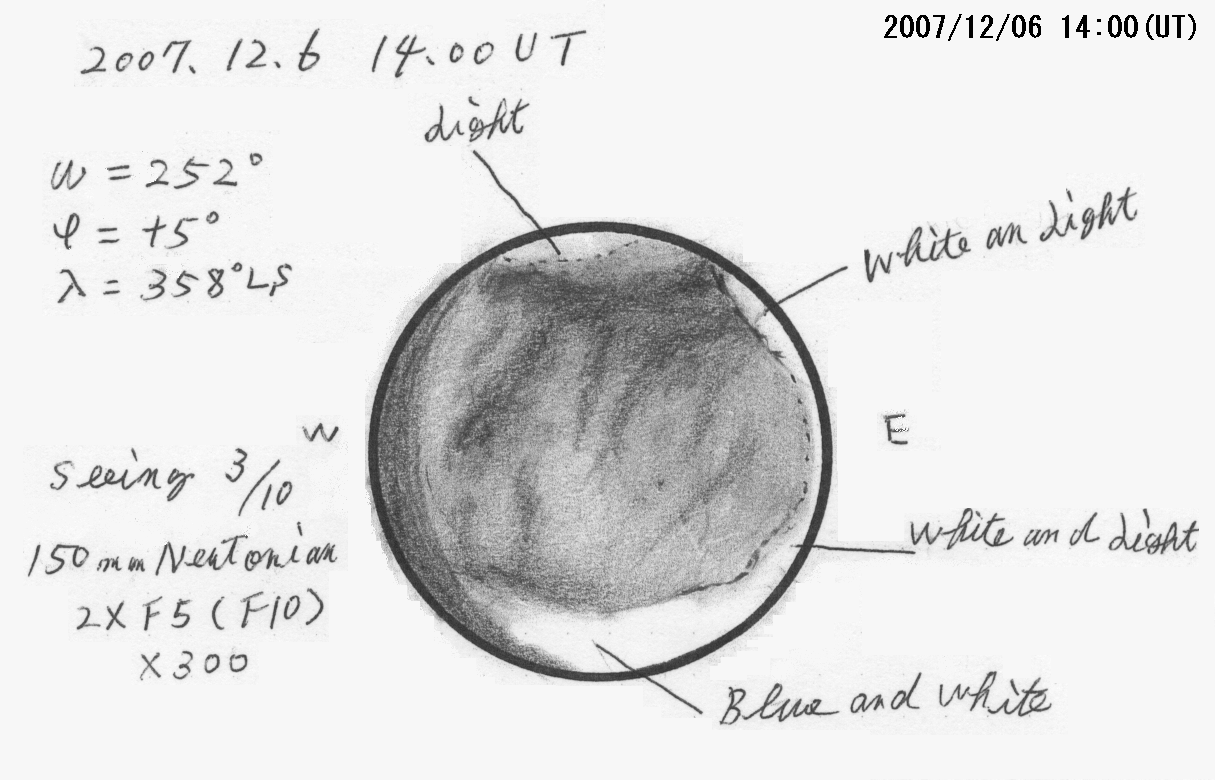 2007/12/06 14:00(UT)
2007. 12. 6 14.00 UT
Light
ω = 252°
φ = +5°
λ = 358°Ls
White an Light
W
E
Seeing 3/10
150mm Newtonian
2X F5 (F10)
X300
White and Light
Blue and white